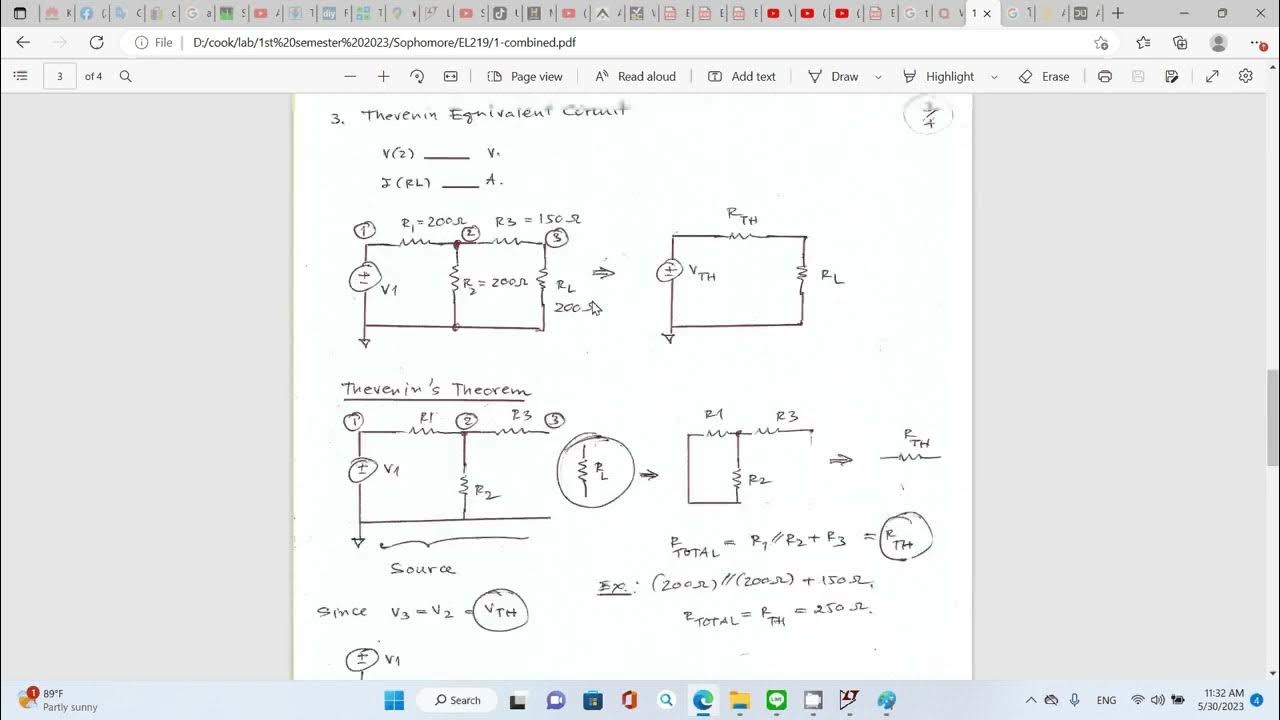 File
D:/cook/lab/1st%20semester%202023/Sophomore/EL219/1-combined.pdf
3 of 4
Page view
Read aloud
Add text
Draw
Highlight
Erase
3. Thevenin Equivalent Circuit
3/4
V(2) ____ V.
I(RL) ____ A.
R1=200Ω R3=150Ω
1 2 3
V1
R2=200Ω
RL
200Ω
⇒
RTH
VTH
RL
Thevenin's Theorem
1 R1 2 R3 3
V1
R2
RL
R1 R3
R2
⇒
RTH
Source
RTOTAL = R1//R2+R3 = RTH
Ex.: (200Ω)//(200Ω)+150Ω.
RTOTAL = RTH = 250Ω.
Since V3=V2= VTH
V1
89°F
Partly sunny
Search
ENG
11:32 AM
5/30/2023